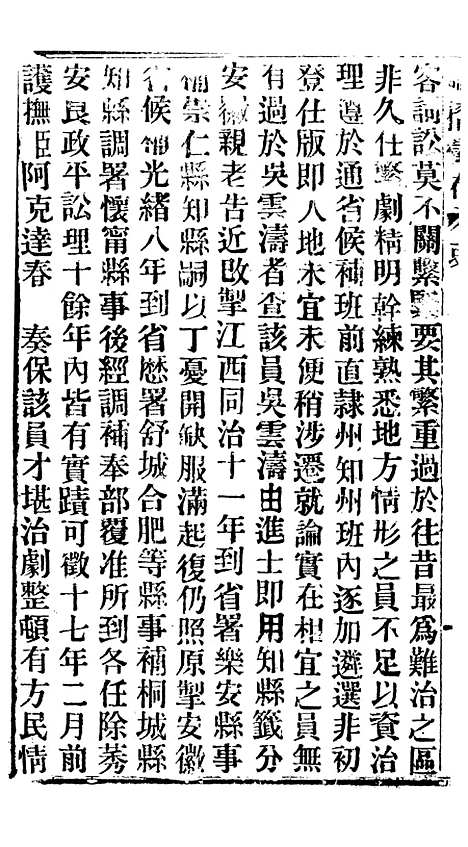 客詞訟莫不關繫緊要其繁重過於往昔最爲難治之區
非久仕繁劇精明幹練熟悉地方情形之員不足以資治
理遵於通省候補班前直隸州知州班內逐加遴選非初
登仕版即人地未宜未便稍涉遷就論實在相宜之員無
有過於吳雲濤者查該員吳雲濤由進士即用知縣籤分
安徽親老告近改掣江西同治十一年到省署樂安縣事
補崇仁縣知縣嗣以丁憂開缺服滿起復仍照原掣安徽
省候補光緒八年到省歷署舒城合肥等縣事補桐城縣
知縣調署懷甯縣事後經調補奉部覆准所到各任除莠
安良政平訟理十餘年內皆有實蹟可徵十七年二月前
護撫臣阿克達春 奏保該員才堪治劇整頓有方民情